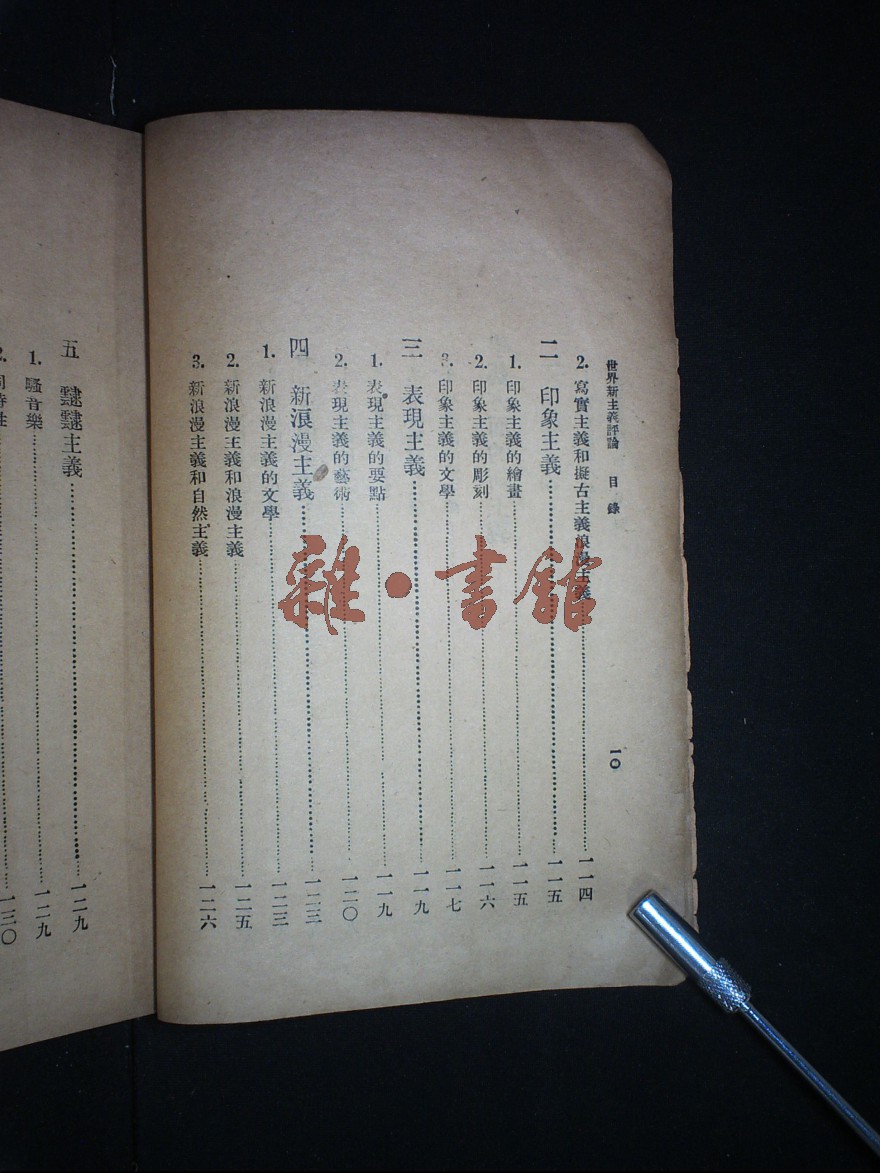 世界新主義評論 目錄 一〇
2. 寫實主義和擬古主義浪漫主義 一一四
二 印象主義 一一五
1. 印象主義的繪畫 一一五
2. 印象主義的彫刻 一一六
3. 印象主義的文學 一一七
三 表現主義 一一九
1. 表現主義的要點 一一九
2. 表現主義的藝術 一二〇
四 新浪漫主義 一二三
1. 新浪漫主義的文學 一二三
2. 新浪漫主義和浪漫主義 一二五
3. 新浪漫主義和自然主義 一二六
五 靆靆主義 一二九
1. 騷音樂 一二九
2. 同時性 一三〇
雜·書館